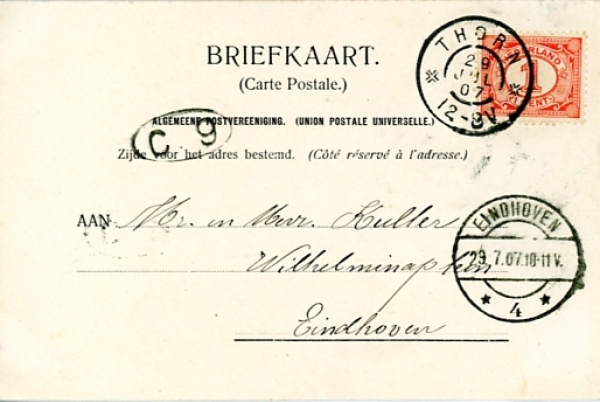 BRIEFKAART.
(Carte Postale.)
ALGEMEENE POSTVEREENIGING. (UNION POSTALE UNIVERSELLE.)
Zijde voor het adres bestemd. (Côté réservé à l'adresse.)
C 9
THORN
29
JUL
07
12-8V
NEDERLAND
1
CENT
AAN Mr. en Mevr. Kuller
Wilhelminaplein
Eindhoven
EINDHOVEN
29.7.07.10-11V.
4